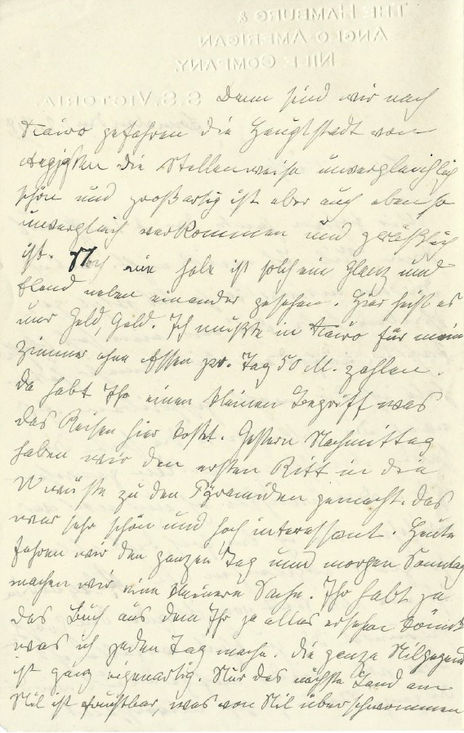 THE HAMBURG &
ANGLO-AMERICAN
NILE COMPANY.
S.S. VICTORIA.
Dann sind wir nach
Kairo gefahren die Hauptstadt von
Aegypten die stellenweise unvergleichlich
schön und großartig ist aber auch ebenso
unvergleich verkommen und gräßlich
ist. Noch nie habe ich solch ein Glanz und
Elend neben einander gesehen. Hier heißt es
nur Geld, Geld. Ich mußte in Kairo für mein
Zimmer ohne Essen pr. Tag 50 M. zahlen.
da habt Ihr einen kleinen Begriff was
das Reisen hier kostet. Gestern Nachmittag
haben wir den ersten Ritt in die
Wüste zu den Pyramiden gemacht. das
war sehr schön und hoch interessant. Heute
fahren wir den ganzen Tag und morgen Sonntag
machen wir eine kleinere Sache. Ihr habt ja
das Buch aus dem Ihr ja alles ersehen könnt
was ich jeden Tag mache. die ganze Nilgegend
ist ganz eigenartig. Nur das nächste Land am
Nil ist fruchtbar, was von Nil überschwommen